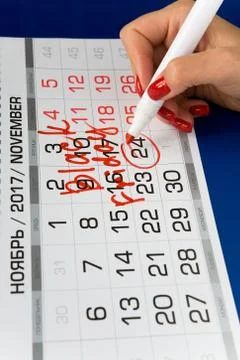 НОЯБРЬ / 2017// NOVEMBER
1 2 3 4 5
6 7 8 9 10 11 12
13 14 15 16 17 18 19
20 21 22 23 24 25 26
27 28 29 30
black
friday